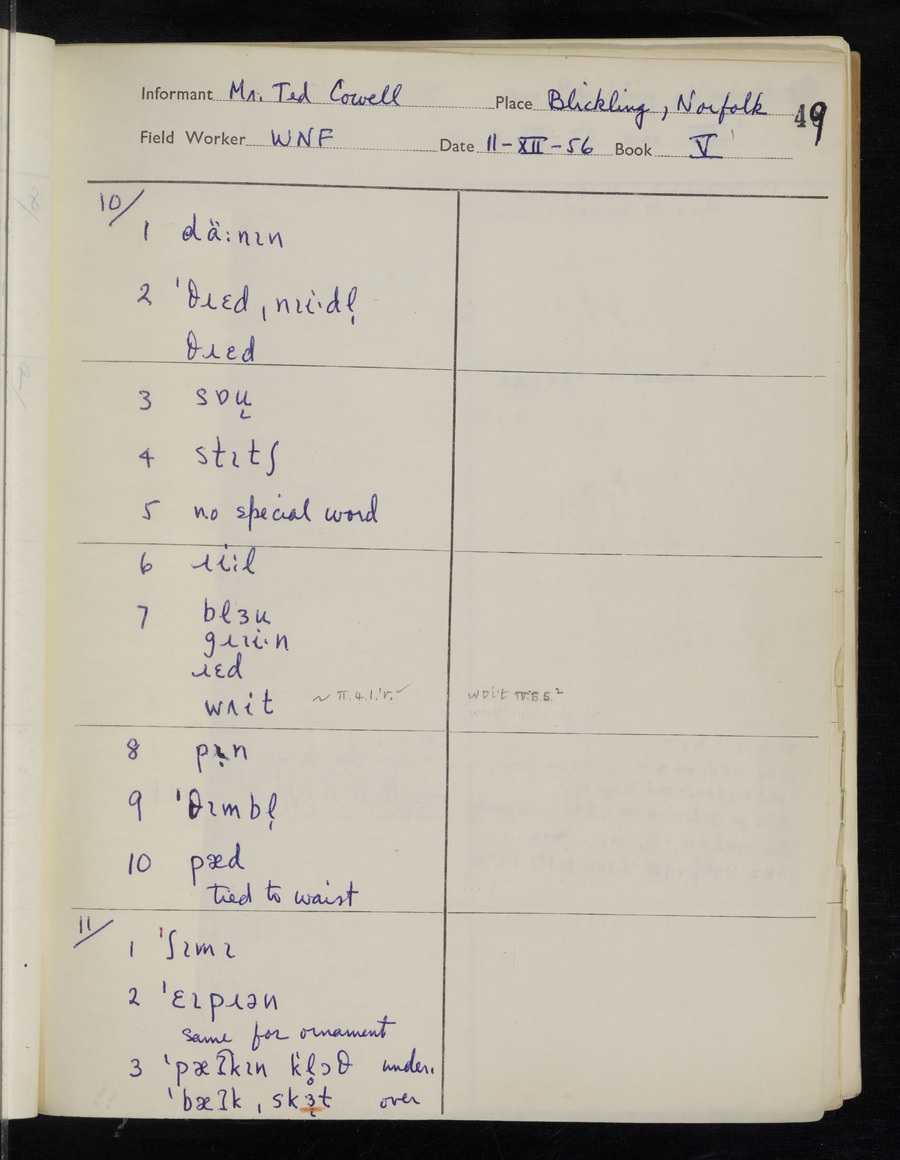 Informant Mr. Ted Cowell Place Blickling, Norfolk 49
Field Worker WNF Date 11-XII-56 Book V
10/
1 dä:nɪn
2 ˈθɹɛd, nɪi·dl̩
θɹɛd
3 sɒʉ̞
4 stɪtʃ
5 no special word
6 ɹɪi:l
7 bɫɜʉ
gɹɪi·n
ɹɛd
wʌit ~ II.4.1.
wɒit IV.5.5.²
8 pɪ̞n
9 ˈθɪmbɫ̩
10 pæd
tied to waist
11/
1 ˈʃɪmɪ
2 ˈɛɪpɹən
same for ornament
3 ˈpæʔkɪn kl̥ɔθ under.
ˈbæʔk, skɜ̞t over